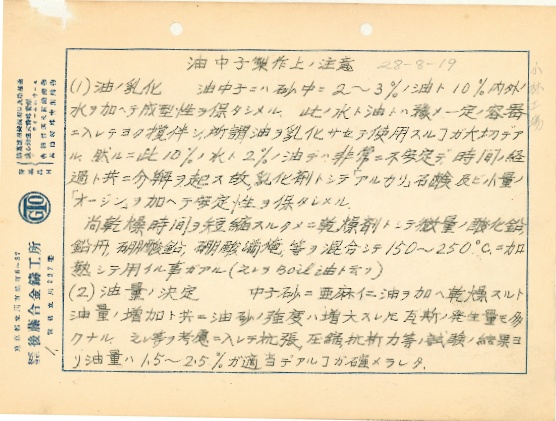 油中子製作上ノ注意 28-8-19
(1)油ノ乳化 油中子ニハ砂中ニ2～3%ノ油ト10%内外ノ
水ヲ加ヘテ成型性ヲ保タシメル 此ノ水ト油トハ予メ一定ノ容器
ニ入レテヨク攪伴シ、所謂油ヲ乳化サセテ使用スルヿガ大切デア
ル 然ルニ此10%ノ水ト2%ノ油デハ非常ニ不安定デ時間ノ経
過ト共ニ分解ヲ起ス故 乳化剤トシテ「アルカリ」石鹸及ビ小量ノ
「オージン」ヲ加ヘテ安定性ヲ保タシメル
尚乾燥時間ヲ短縮スルタメニ乾燥剤トシテ微量ノ酸化鉛
硼酸鉛、硼酸満俺、等ヲ混合シテ150～250℃ニ加
熱シテ用イル事ガアル(之レヲBoil油ト云フ)
(2)油量ノ決定 中子砂ニ亜麻仁油ヲ加ヘ乾燥スルト
油量ノ増加ト共ニ油砂ノ強度ハ増大スレ𪜈瓦斯ノ発生量モ多
クナル 之レ等ヲ考慮ニ入レテ抗張、圧縮抗折力等ノ試験ノ結果ヨ
リ油量ハ1.5～2.5%ガ適当デアルヿガ確メラレタ。
GTO
後藤合金鋳工所